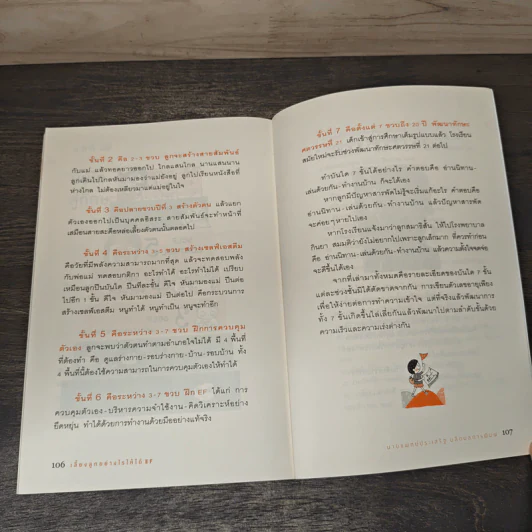 ขั้นที่ 2 คือ 2-3 ขวบ ลูกจะสร้างสายสัมพันธ์
กับแม่ แล้วทอดยาวออกไป ไกลแสนไกล นานแสนนาน
ลูกเดินไปไกลหันมามองเราแม่ยังอยู่ ลูกไปเรียนหนังสือที่
ห่างไกล ไม่ต้องเหลียวมาแต่แม่อยู่ในใจ
ขั้นที่ 3 คือปลายขวบปีที่ 3 สร้างตัวตน แล้วแยก
ตัวเองออกไปเป็นบุคคลอิสระ สายสัมพันธ์จะทำหน้าที่
เสมือนสายสะดือหล่อเลี้ยงตัวตนนั้นตลอดไป
ขั้นที่ 4 คือระหว่าง 3-5 ขวบ สร้างเซลฟ์เอสตีม
คือวัยที่มีพลังความสามารถมากที่สุด แล้วจะทดสอบพลัง
กับพ่อแม่ ทดสอบกติกา อะไรทำได้ อะไรทำไม่ได้ เปรียบ
เหมือนลูกปีนบันได ปีนทีละขั้น ดีใจ หันมามองแม่ ปีนต่อ
ไปอีก 1 ขั้น ดีใจ หันมามองแม่ ปีนต่อไป คือกระบวนการ
สร้างเซลฟ์เอสตีม หนูทำได้ หนูทำเป็น หนูจะทำอีก
ขั้นที่ 5 คือระหว่าง 3-7 ขวบ ฝึกการควบคุม
ตัวเอง ลูกจะพบว่าตัวตนทำตามอำเภอใจไม่ได้ มี 4 พื้นที่
ที่ต้องทำ คือ ดูแลร่างกาย-รอบร่างกาย-บ้าน-รอบบ้าน ทั้ง
4 พื้นที่นี้ต้องใช้ความสามารถในการควบคุมตัวเองให้ทำได้
ขั้นที่ 6 คือระหว่าง 3-7 ขวบ ฝึก EF ได้แก่ การ
ควบคุมตัวเอง-บริหารความจำใช้งาน-คิดวิเคราะห์อย่าง
ยืดหยุ่น ทำได้ด้วยการทำงานด้วยมืออย่างแท้จริง
106 เลี้ยงลูกอย่างไรให้ได้ EF
ขั้นที่ 7 คือตั้งแต่ 7 ขวบถึง 20 ปี พัฒนาทักษะ
ศตวรรษที่ 21 เด็กเข้าสู่การศึกษาเต็มรูปแบบแล้ว โรงเรียน
สมัยใหม่จะรับช่วงพัฒนาทักษะศตวรรษที่ 21 ต่อไป
ทำบันได 7 ขั้นได้อย่างไร คำตอบคือ อ่านนิทาน-
เล่นด้วยกัน-ทำงานบ้าน ก็จะได้เอง
หากลูกมีปัญหาสารพัดไม่รู้จะเริ่มแก้อะไร คำตอบคือ
อ่านนิทาน-เล่นด้วยกัน-ทำงานบ้าน แล้วปัญหาสารพัด
จะค่อยๆ หายไปเอง
หากโรงเรียนแจ้งมาว่าลูกสมาธิสั้น ให้ไปโรงพยาบาล
กินยา สมมติว่ายังไม่อยากไปเพราะลูกเล็กมาก ที่ควรทำก่อน
คือ อ่านนิทาน-เล่นด้วยกัน-ทำงานบ้าน แล้วความตั้งใจจดจ่อ
จะดีขึ้นได้เอง
จากที่เล่ามาทั้งหมดคือรายละเอียดของบันได 7 ขั้น
แต่ละช่วงชั้นมิได้ตัดขาดจากกัน การเขียนตัวเลขอายุเพียง
เพื่อให้ง่ายต่อการทำความเข้าใจ แต่ที่จริงแล้วพัฒนาการ
ทั้ง 7 ขั้นเกิดขึ้นไล่เลี่ยกันแล้วพัฒนาไปตามลำดับชั้นด้วย
ความเร็วและความเร่งต่างกัน
107